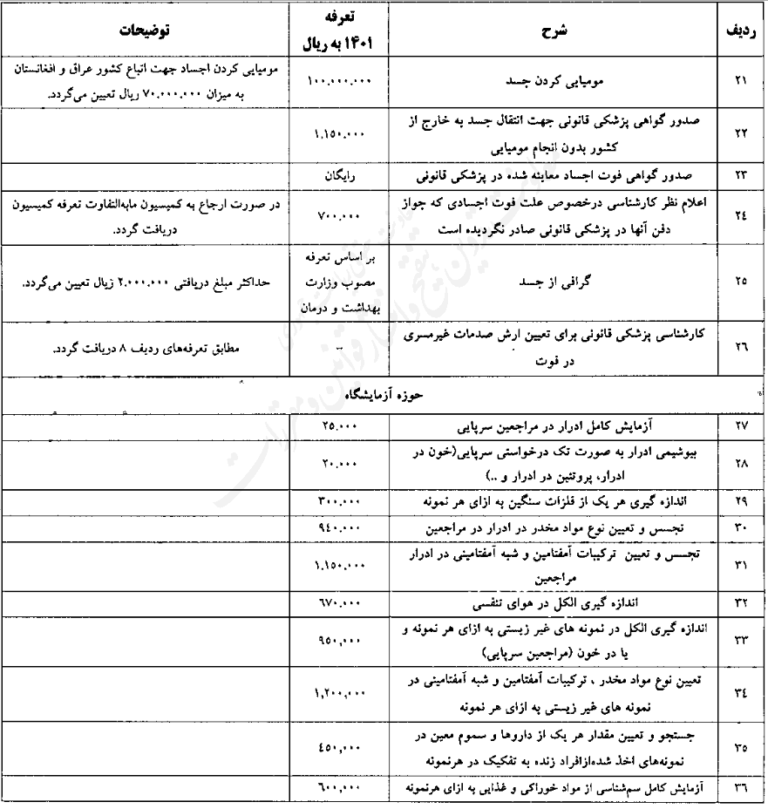 ردیف شرح تعرفه ۱۴۰۱ به ریال توضیحات
۲۱ مومیایی کردن جسد ۱۰۰,۰۰۰,۰۰۰ مومیایی کردن اجساد جهت اتباع کشور عراق و افغانستان
به میزان ۷۰,۰۰۰,۰۰۰ ریال تعیین می‌گردد.
۲۲ صدور گواهی پزشکی قانونی جهت انتقال جسد به خارج از
کشور بدون انجام مومیایی ۱,۱۵۰,۰۰۰
۲۳ صدور گواهی فوت اجساد معاینه شده در پزشکی قانونی رایگان
۲۴ اعلام نظر کارشناسی درخصوص علت فوت اجسادی که جواز
دفن آنها در پزشکی قانونی صادر نگردیده است ۷۰۰,۰۰۰ در صورت ارجاع به کمیسیون مابه‌التفاوت تعرفه کمیسیون
دریافت گردد.
۲۵ گرافی از جسد بر اساس تعرفه
مصوب وزارت
بهداشت و درمان حداکثر مبلغ دریافتی ۲,۰۰۰,۰۰۰ ریال تعیین می‌گردد.
۲۶ کارشناسی پزشکی قانونی برای تعیین ارش صدمات غیرمسری
در فوت -- مطابق تعرفه‌های ردیف ۸ دریافت گردد.
حوزه آزمایشگاه
۲۷ آزمایش کامل ادرار در مراجعین سرپایی ۲۵,۰۰۰
۲۸ بیوشیمی ادرار به صورت تک درخواستی سرپایی(خون در
ادرار، پروتئین در ادرار و ..) ۲۰,۰۰۰
۲۹ اندازه گیری هر یک از فلزات سنگین به ازای هر نمونه ۳۰۰,۰۰۰
۳۰ تجسس و تعیین نوع مواد مخدر در ادرار در مراجعین ۹٤۰,۰۰۰
۳۱ تجسس و تعیین ترکیبات آمفتامین و شبه آمفتامینی در ادرار
مراجعین ۱,۱۵۰,۰۰۰
۳۲ اندازه گیری الکل در هوای تنفسی ۶۷۰,۰۰۰
۳۳ اندازه گیری الکل در نمونه های غیر زیستی به ازای هر نمونه و
یا در خون (مراجعین سرپایی) ۹۵۰,۰۰۰
۳٤ تعیین نوع مواد مخدر ، ترکیبات آمفتامین و شبه آمفتامینی در
نمونه های غیر زیستی به ازای هر نمونه ۱,۲۰۰,۰۰۰
۳۵ جستجو و تعیین مقدار هر یک از داروها و سموم معین در
نمونه‌های اخذ شده‌ازافراد زنده به تفکیک در هرنمونه ٤۵۰,۰۰۰
۳۶ آزمایش کامل سم‌شناسی از مواد خوراکی و غذایی به ازای هرنمونه ۶۰۰,۰۰۰